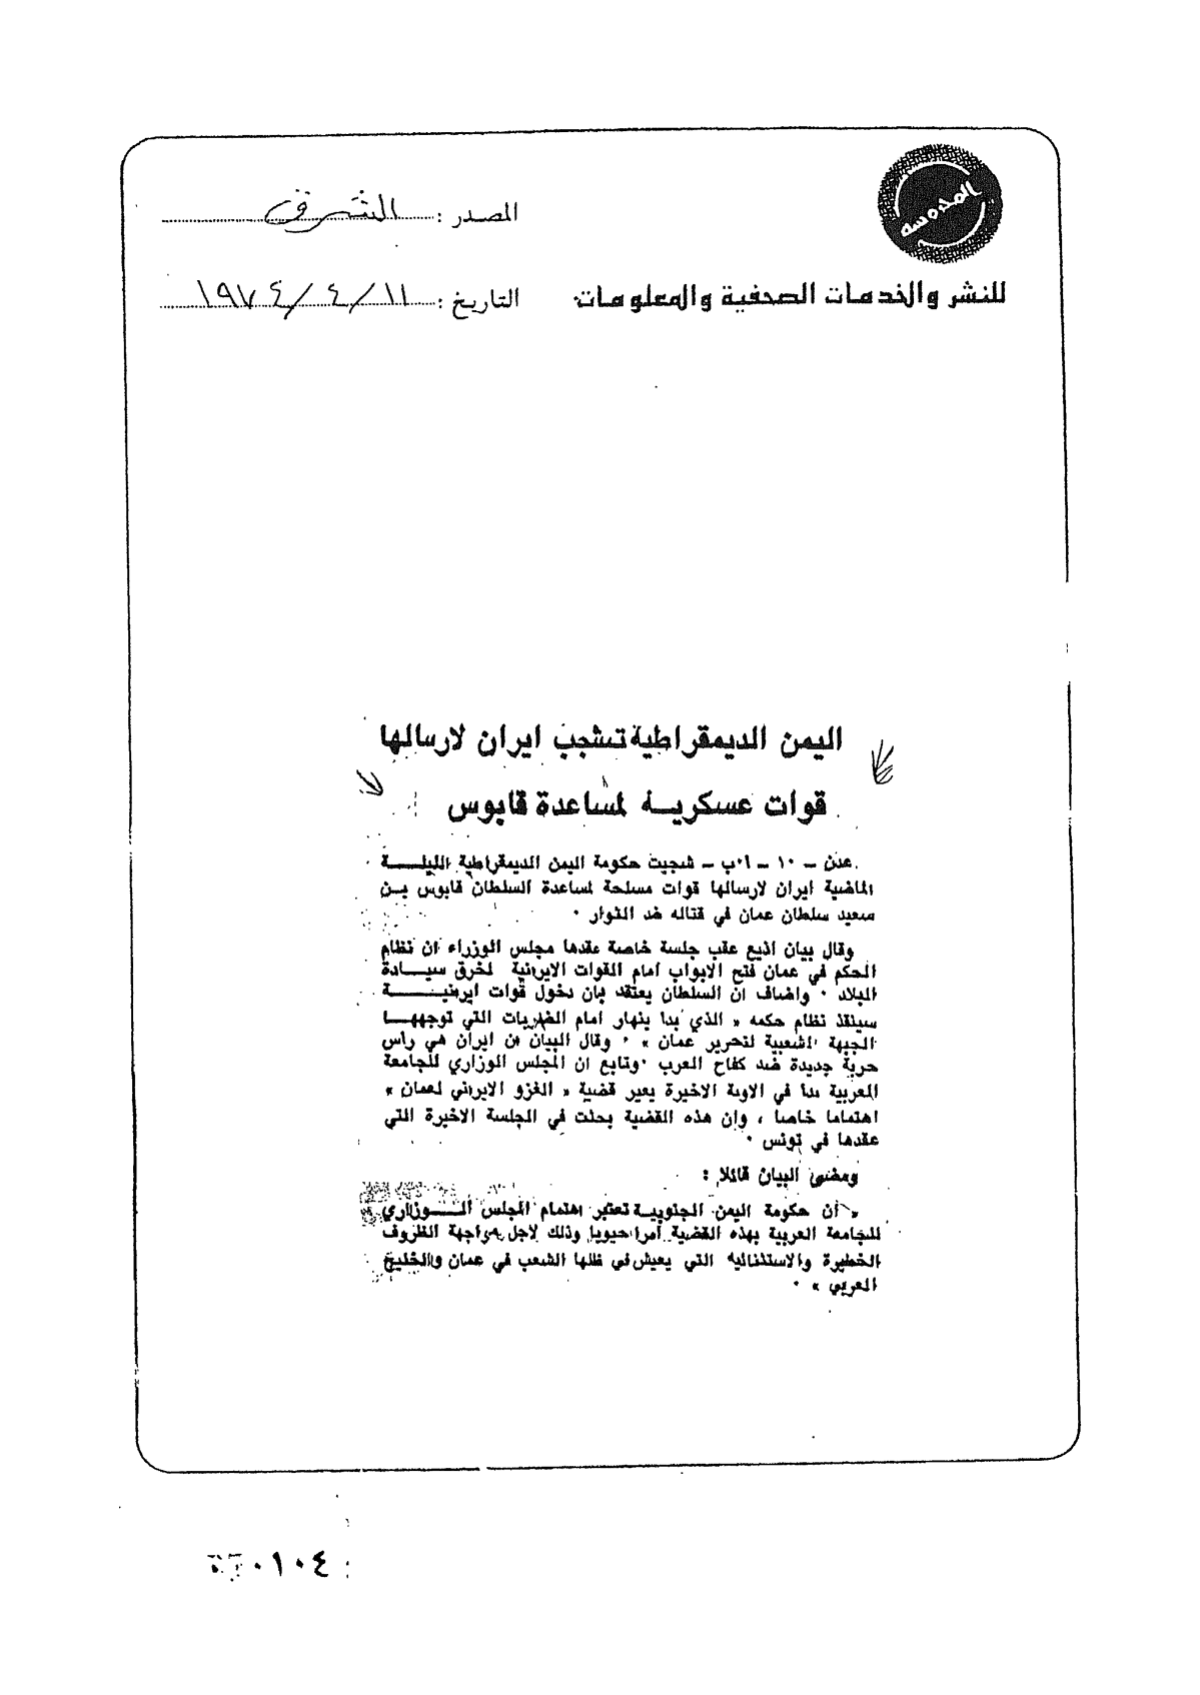 المدرسة
للنشر والخدمات الصحفية والمعلومات
المصدر : الشرق
التاريخ : ١١/٤/١٩٧٤
اليمن الديمقراطية تشجب ايران لارسالها
قوات عسكرية لمساعدة قابوس
عدن - ١٠ - ا٠ب - شجبت حكومة اليمن الديمقراطية الليلة
الماضية ايران لارسالها قوات مسلحة لمساعدة السلطان قابوس بن
سعيد سلطان عمان في قتاله ضد الثوار ٠
وقال بيان اذيع عقب جلسة خاصة عقدها مجلس الوزراء ان نظام
الحكم في عمان فتح الابواب امام القوات الايرانية لخرق سيادة
البلاد ٠ واضاف ان السلطان يعتقد بان دخول قوات ايرنية
سينقذ نظام حكمه « الذي بدا ينهار امام الضربات التي توجهها
الجبهة الشعبية لتحرير عمان » ٠ وقال البيان ان ايران هي رأس
حربة جديدة ضد كفاح العرب ٠ وتابع ان المجلس الوزاري للجامعة
العربية بدا في الاونة الاخيرة يعير قضية « الغزو الايراني لعمان »
اهتماما خاصا ، وان هذه القضية بحثت في الجلسة الاخيرة التي
عقدها في تونس ٠
ومضى البيان قائلا :
« أن حكومة اليمن الجنوبية تعتبر اهتمام المجلس الوزاري
للجامعة العربية بهذه القضية أمرا حيويا وذلك لاجل مواجهة الظروف
الخطيرة والاستثنائيه التي يعيش في ظلها الشعب في عمان والخليج
العربي » ٠
٠١٠٤